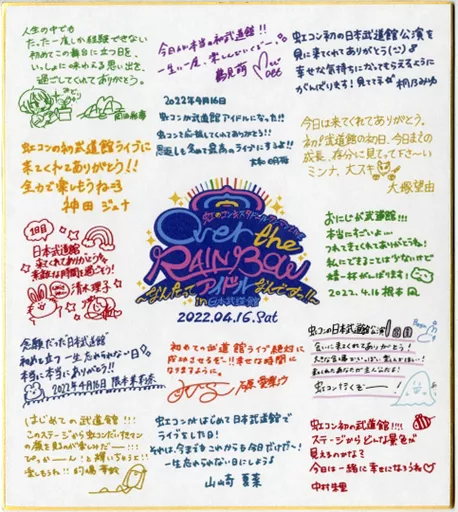 人生の中でも
たった一度しか経験できない
初めてこの舞台に立つ日を、
いっしょに味わえる思い出を、
過ごしてくれてありがとう。
今日が本当の初武道館!!
鶴見萌
虹コン初の日本武道館公演を
見に来てくれてありがとう
幸せな気持ちになってもらえるように
がんばります!見ててネ 桐乃みゆ
2022年4月16日
虹コンが武道館アイドルになった!!
虹コンを応援してくれてありがとう!!
恩返しも含めて最高のライブにするよ!!
大和明桜
虹コンの初武道館ライブに
来てくれてありがとう!!
全力で楽しもうね
神田ジュナ
今日は来てくれてありがとう。
初!武道館の初日、今日までの
成長、存分に見てって下さ〜い
ミンナ、大スキ
大塚望由
1日目
日本武道館
来てくれてありがとう
素敵な時間を過ごそう!
清水理子
虹のコンキスタドール
Over the
RAINBOW
〜なんたってアイドルなんですっ!!〜
in日本武道館
2022.04.16.Sat
おにじが武道館!!!
本当にすごいよ…
つれてきてくれてありがとうね!
私にできることは少ないけど
精一杯がんばります!
2022.4.16 根本凪
念願だった日本武道館
初めて立つ一生忘れられない一日
本当に本当にありがとう!
2022年4月16日 隈本茉莉奈
初めての武道館ライブ絶対に
成功させるぞー!!幸せな時間に
なりますように。
虹コンの日本武道館公演1日目
会いに来てくれてありがとう!
虹コン行くぞー!
はじめての武道館!!!
このステージから虹コンだいすきマン
の顔を見るのが楽しみだー!!!
ぴっかーんと輝いちゃうぞ!!
楽しもうね!! 的場華鈴
虹コンがはじめて日本武道館で
ライブをした日!
それは、今までもこれからも今日だけだー!
一生忘れられない日にしよう
山崎夏菜
虹コン初の武道館!!!!
ステージからどんな景色が
見えるのかな?
今日は一緒に幸せになろうね♡
中村朱里